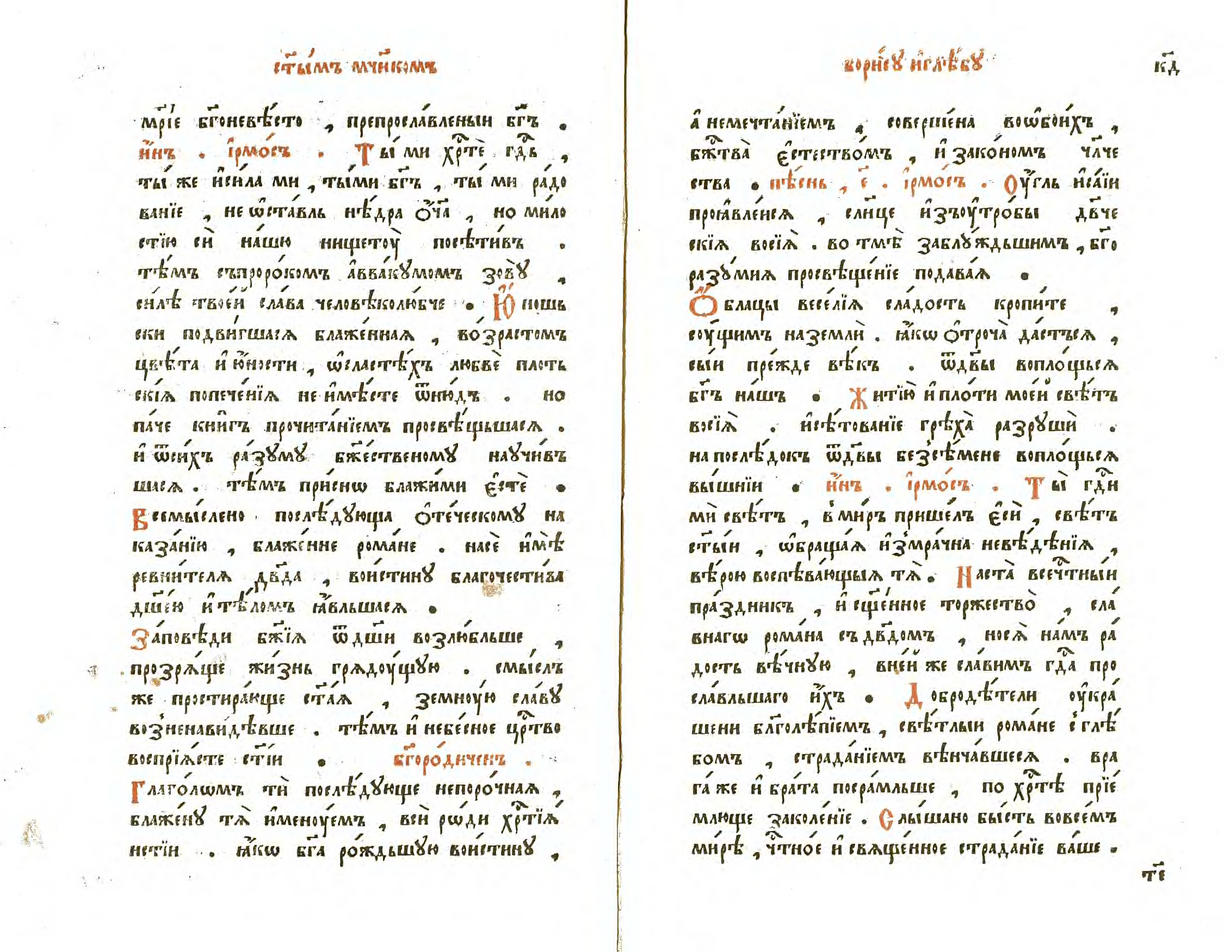 ст҃ы́мъ мч҃нкомъ
мр҃і́е бг҃оневѣ́сто , препросла́вленыи бг҃ъ .
и҆́нъ . і҆рмо́съ . Ты́ ми хрⷭ҇тѐ гдⷭ҇ь ,
ты́ же и҆си́ла ми , ты́ми бг҃ъ , ты́ ми ра́до
ва́нїе , не ѡ҆ста́вль нѣ́дра ѻ҆́ч҃а , но ми́ло
стїю си́ на́шю нищетоу̀ посѣти́въ .
тѣ́мъ съпроро́комъ а҆вваку́момъ зовꙋ̀ ,
си́лѣ твое́й сла́ва человѣколю́бче . Ю҆́ношь
ски подви́гшася блаже́нная , во́зрастомъ
цвѣ́та и҆ ю҆́ности , ѡ҆сласте́хъ любвѐ пло́ть
скїя попече́нїя не и҆мѣ́сте ѿню́дъ . но
па́че кни́гъ прочита́нїемъ просвѣ́щьшася .
и҆ ѿси́хъ ра́зумꙋ бж҃е́ственомꙋ наꙋчи́въ
шася . тѣ́мъ при́снѡ блажи́ми є҆стѐ .
Всемы́слено послѣ́дꙋюща ѻ҆те́ческомꙋ на
каза́нїю , блаже́нне рома́не . насѐ и҆мѣ̀
ревни́теля дв҃да , вои́стинꙋ благочести́ва
дш҃е́ю и҆ тѣ́ломъ ꙗ҆́вльшася .
За́повѣди бж҃їя ѿ дш҃и возлю́бльше ,
прозря́ще жи́знь грядоу́щую . смы́слъ
же простира́юще ст҃а́я , земноу́ю сла́вꙋ
возненави́дѣвше . тѣ́мъ и҆ небе́сное црⷭ҇тво
воспрїя́сте ст҃і́и . бг҃оро́диченъ .
Глаго́лѡмъ ти̑ послѣ́дꙋюще непоро́чная ,
блаже́нꙋ тѧ̀ и҆меноу́емъ , вси́ рѡ́ди хрⷭ҇тїѧ́
нстїи . ꙗ҆́кѡ бг҃а ро́ждьшꙋю вои́стинꙋ ,
бори́сꙋ и҆глѣ́бꙋ
к҃д
а҆ немечта́нїемъ , соверше́на воѡ҆бои́хъ ,
бж҃тва̀ є҆стество́мъ , и҆ зако́номъ чл҃че
ства . пѣ́снь , є҃ . і҆рмо́съ . Оу҆́гль и҆са́їи
проꙗ҆вле́ися , сл҃нце и҆зъоутро́бы дв҃че
скїя восїя̀ . во тмѣ̀ заблꙋ́ждьшимъ , бг҃о
ра́зꙋмия просвѣще́нїе подава́я .
Ѻ҆́блацы весе́лїя сла́дость кропи́те ,
соу́щимъ на землѝ . ꙗ҆́кѡ ѻ҆троча̀ да́стъся ,
сы́и пре́жде вѣ́къ . ѿ дв҃ы воплощься
бг҃ъ на́шъ . Житїю̀ и҆ пло́ти мое́й свѣ́тъ
восїя̀ . и҆сѣ́тованїе грѣха̀ разрꙋшѝ .
на послѣ́докъ ѿ дв҃ы безсѣ́мене воплощься
вы́шнїи . и҆́нъ . і҆рмо́съ . Ты́ гдⷭ҇и
мѝ свѣ́тъ , в ми́ръ пришелъ є҆сѝ , свѣ́тъ
ст҃ы́и , ѡ҆браща́я и҆з̾мра́чна невѣ́дѣнїя ,
вѣ́рою воспѣва́ющыя тѧ̀ . Наста̀ всечⷭ҇тны́и
пра́здникъ , и҆ сщ҃е́нное торжество̀ , сла́
внагѡ рома́на съ дв҃домъ , нося̀ на́мъ ра́
дость вѣ́чнꙋю , вне́й же сла́вимъ гдⷭ҇а про
сла́вльшаго и҆́хъ . Добродѣ́тели оу҆кра́
шени блг҃олѣ́пїемъ , свѣ́тлыи рома́не с глѣ́
бомъ , страда́нїемъ вѣнча́вшеся . вра
га́ же и҆ бра́та посра́мльше , по хрⷭ҇тѣ̀ прїе́
млюще заколе́нїе . Слы́шано бы́сть вовсе́мъ
ми́рѣ , чⷭ҇тное и҆ свяще́нное страда́нїе ва́ше .
тѣ̑